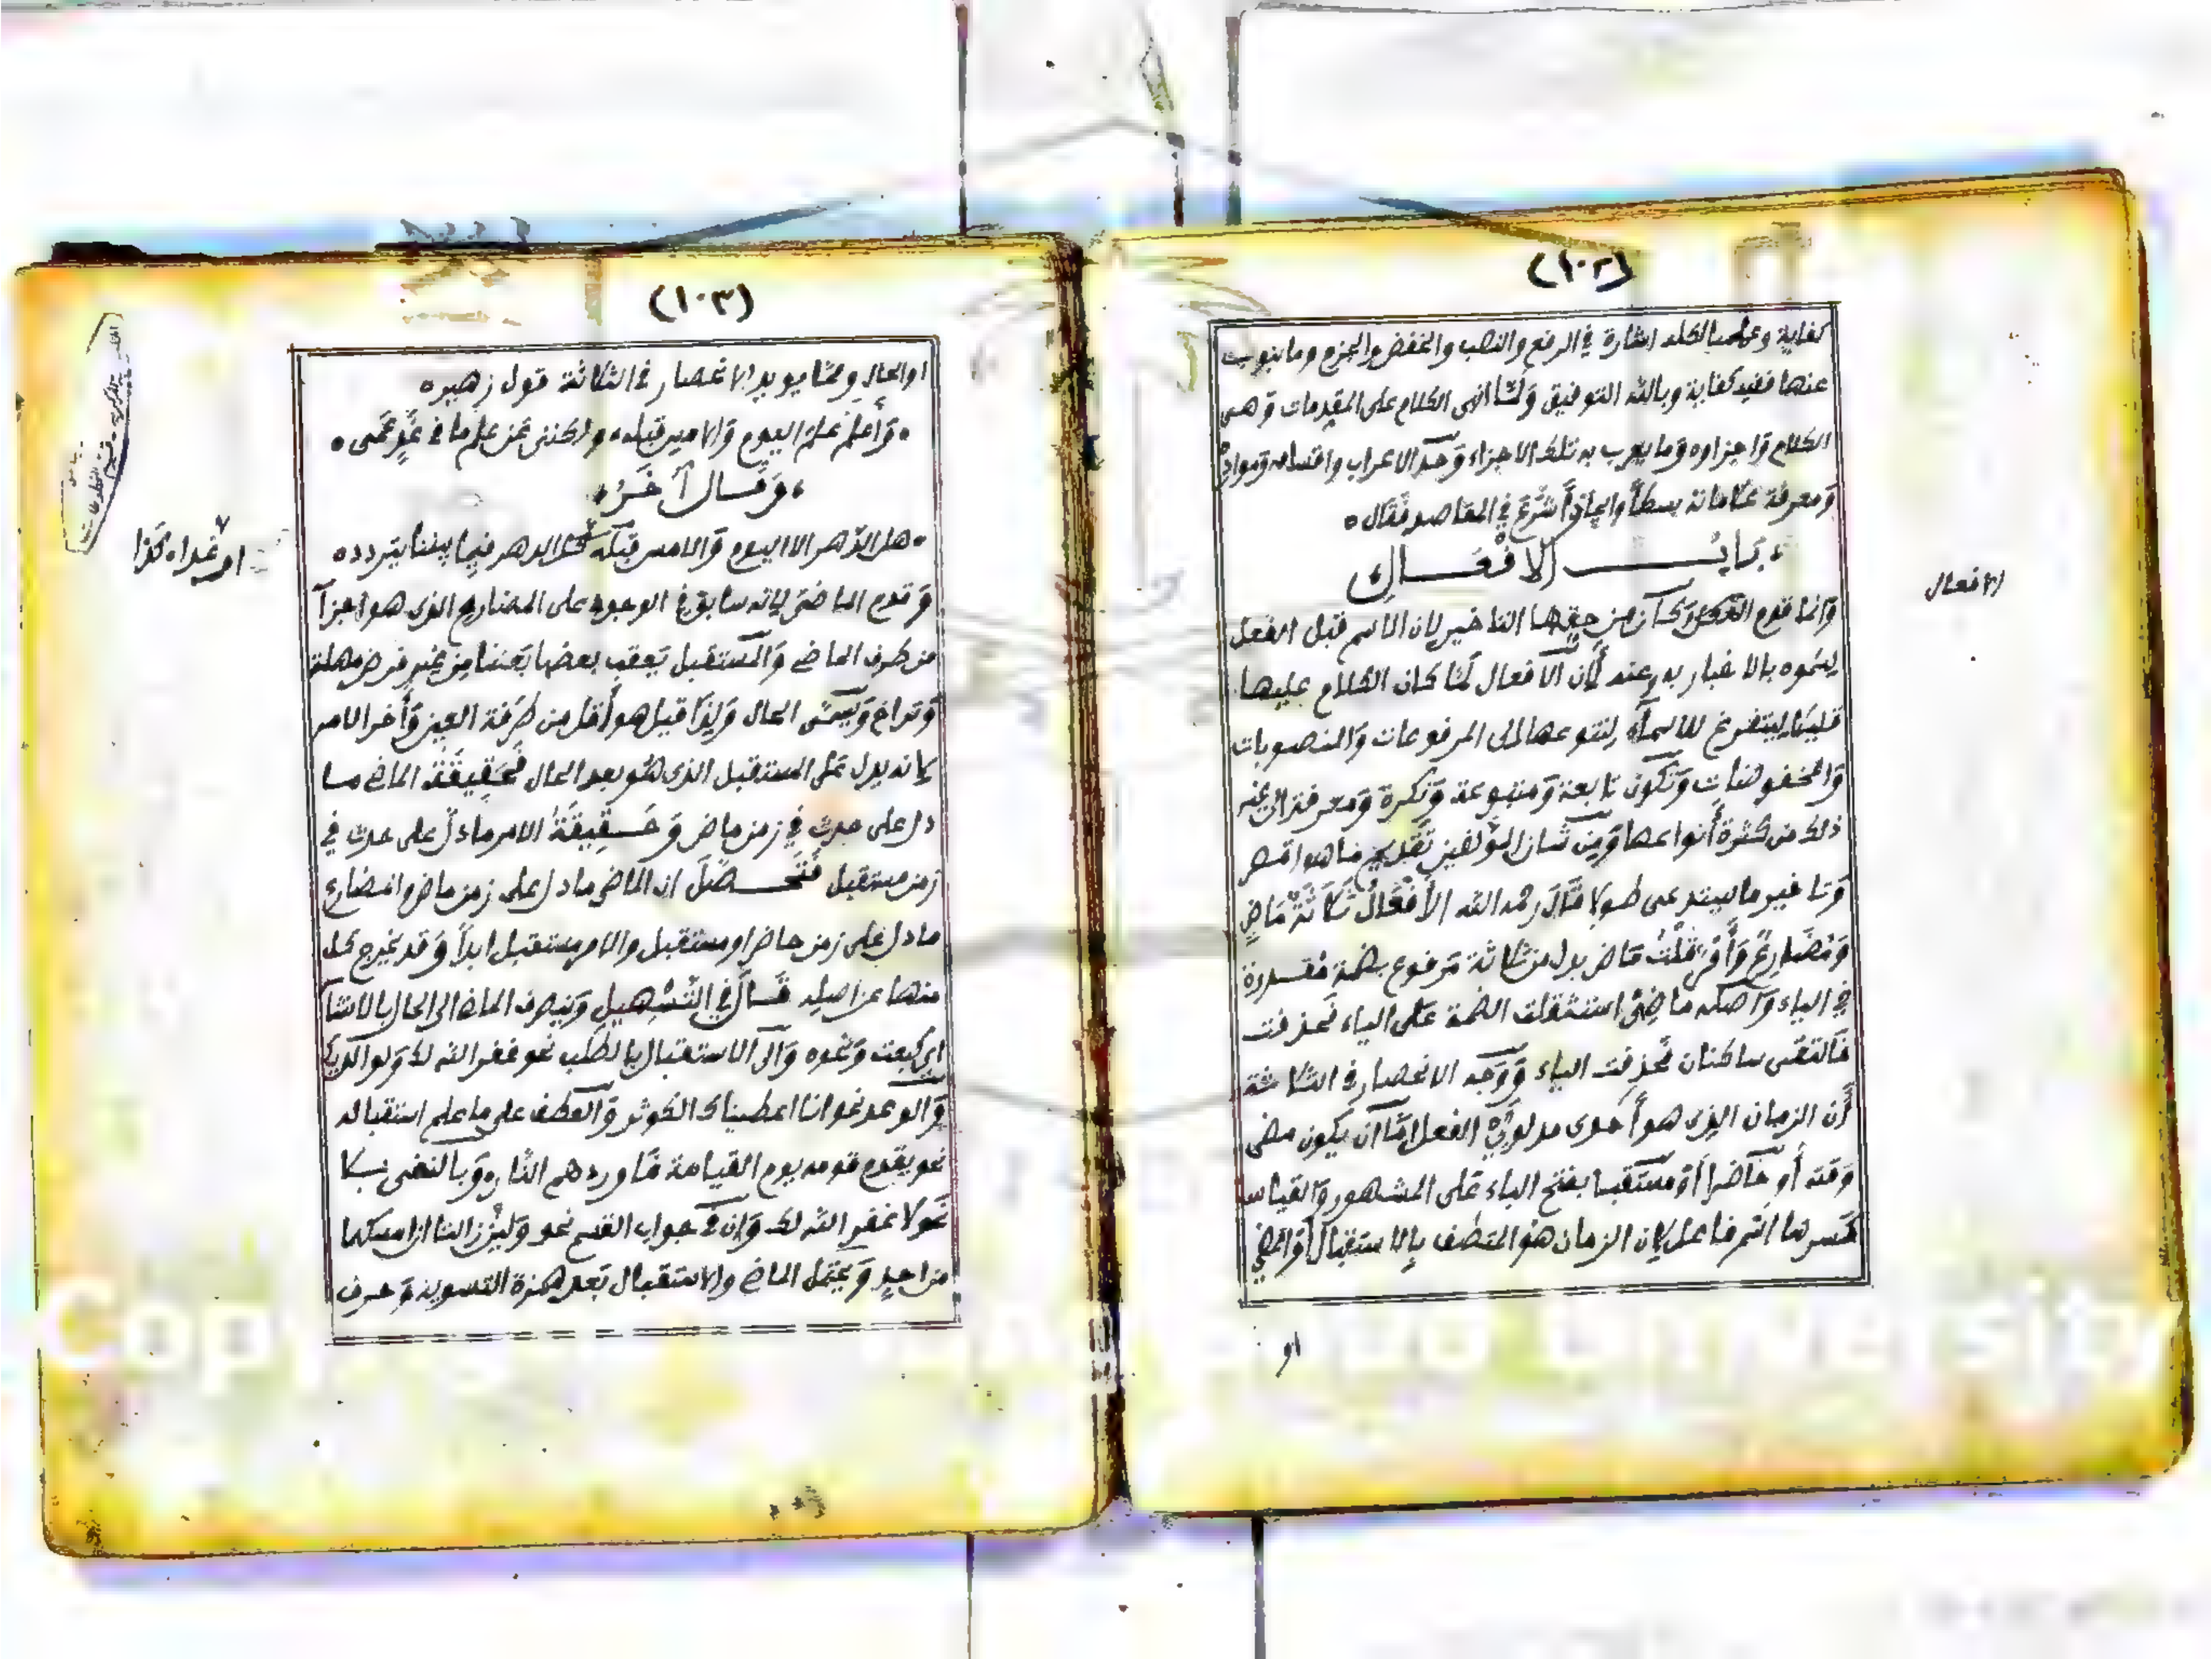 (١٠٢)
كفاية وعلم بالكلد اشارة في الرفع والنصب والخفض والجزم وما ينوب
عنها ففيه كفاية وبالله التوفيق وَلَمَّا انهى الكلام على المقدمات وَهى
الكلام وَاجزاوه وَما يعرب به تلك الاجزاء وَحَد الاعراب واقسامه وَمواده
وَمعرفة علاماته بسطاً وايجازاً شَرَعَ في المقاصد فَقَال
بَابُ الافْعَالِ
الافعال
وَانما قدم الفعل وَكَان من حقها التاخير لان الاسم قبل الفعل
لسموه بالاخبار به وعنه لِأَن الافعال لَمّا كان الكلام عليها
قليلا ليتفرغ للاسماء لتنوعها الى المرفوعات وَالمنصوبات
وَالمخفوضات وَتكون تابعة وَمتبوعة وَنكرة وَمعرفة الى غير
ذلك من كثرة أنواعها وَمِن شان المؤلفين تَقديم ما هو اقصر
وَتاخير ما يستدعى طولا قَالَ رحمه الله الأَفْعَالُ ثَلَاثَةٌ مَاضٍ
وَمُضَارِعٌ وَأَمْرٌ قُلْتُ مَاض بدل من ثلاثة مَرفوع بضمة مُقدرة
في الياء وَاصله ماضِىٌ استثقلت الضمة عَلى الياء فَحذفت
فَالتقى ساكنان فَحُذِفت الياء وَوَجه الانحصار في الثلاثة
أَن الزمان الذى هو أَحدى مدلولَىِ الفعل امّا ان يكون مضى
وَقته أَو حَاضرا أَوْ مُستَقبلا بفتح الباء عَلى المشهور وَالقياس
كسرها اسم فاعل لان الزمان هو المتصف بالاستقبال أوَالمضي
او
(١٠٣)
اوالحال وَممّا يويد الانحصار في الثلاثة قول زهير
وَأَعلم عِلم اليوم وَالامس قبله ولكننى عَن علم ما في غَدٍ عَمى
وَقَال آخَرُ
هل الدّهر الا اليوم وَالامس قبله كذا الدهر فيما بيننا يتردد
او غدا كذا
وَقدم الماضى لِانه سابق في الوجود على المضارع الذى هو اجزآ
من طرف الماضى وَالمستقبل يَعقب بعضها بَعضا مِن غير فرض مهلة
وَتراخ وَيسمّى الحال وَلِذا قيل هو أَقل من طَرفة العين وَأَخر الامر
لانه يدل عَلى المستقبل الذى هُو بعد الحال فَحَقِيقَةُ الماضى ما
دل على حدث في زمن ماض وَحَقِيقَةُ الامر ما دلّ على حدث في
زمن مستقبل فَتَحَصَّلَ ان الماضى ما دل على زمن ماض والمضارع
ما دل على زمن حاضر او مستقبل والامر مستقبل ابداً وَقد يخرج كل
منها عن اصله قَالَ في التَّسْهِيل وَينصرف الماضى الى الحال بالانشآ
اى كبعت وَنحوه وَالى الاستقبال بالطلب نحو غفر الله لك وَلوالديك
وَالوعد نحو انا اعطيناك الكوثر وَالعطف على ما علم استقباله
نحو يقدم قومه يوم القيامة فَاوردهم النار وَبالنفى بلا
نَحو لا غفر الله لك وَان في جواب القسم نحو وَلئن زالتا ان امسكهما
من احد وَيحتمل الماضى والاستقبال بَعد همزة التسوية وَحرف